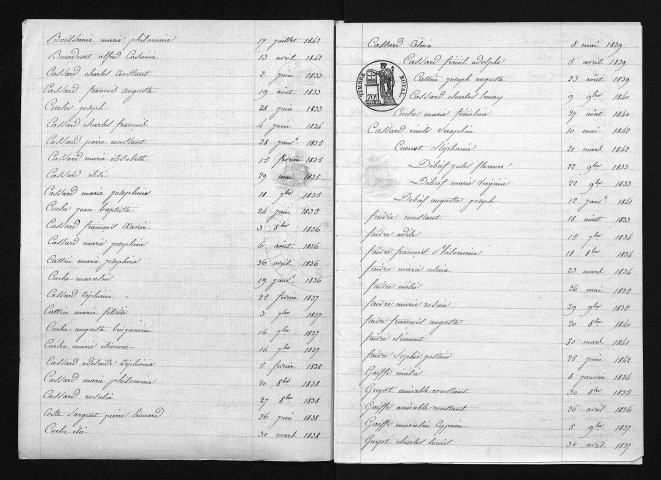 Boissenin marie philomène 17 juillet 1842
Bourdenet alfred Casimir 13 avril 1842
Cassard charles constant 2 juin 1833
Cassard francois auguste 19 août 1833
Cuche joseph 28 juin 1833
Cassard charles francois 4 juin 1834
Cassard pierre constant 28 janv. 1835
Cassard marie elisabeth 15 fevrier 1835
Cassard élise 29 mai 1835
Cassard marie josephine 18 7bre 1835
Cuche jean baptiste 24 juin 1835
Cassard francois Xavier 3 8bre 1836
Cassard marie josephine 6 août 1836
Cattin marie josephine 26 avril 1836
Cuche marcelin 19 janv. 1836
Cassard Zéphirin 28 fevrier 1837
Cattin marie félicité 3 7bre 1837
Cuche auguste benjamin 16 7bre 1837
Cuche marie éléonore 16 7bre 1837
Cassard adelaide Zéphirine 5 fevrier 1838
Cassard marie philomène 20 8bre 1838
Cassard rosalie 27 8bre 1838
Coste Sarguet pierre leonard 26 juin 1838
Cuche élie 30 mars 1838
Cassard Célina 8 mai 1839
Cassard féréol adolphe 5 avril 1839
Cattin joseph auguste 23 août 1839
TIMBRE ROYAL
Cassard charles henry 9 9bre 1840
Cuche marie 27 août 1840
Cassard emile Séraphin 10 mai 1842
Cuenot Stéphanie 21 mars 1842
Débief jules florence 22 9bre 1833
Débief marie virginie 22 9bre 1833
Débief auguste joseph 12 janv. 1841
faivre constant 18 août 1833
faivre adèle 15 7bre 1834
faivre francois Philomin 18 8bre 1834
faivre marie celina 23 mars 1834
faivre mélie 26 mai 1835
faivre marie rosine 29 9bre 1835
faivre francois auguste 20 8bre 1840
faivre clément 30 mars 1841
faivre Sophie justine 25 juin 1842
Gaiffe emélie 8 janvier 1834
Guyot aimable constant 30 8bre 1835
Gaiffe aimable constant 26 avril 1836
Gaiffe Cyprien 5 9bre 1837
Guyot charles louis 30 avril 1837